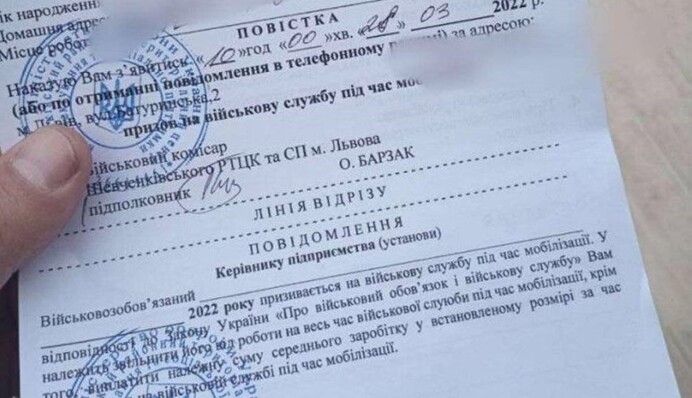 ік народженн
Домашня адре
Місце робот
ПОВІСТКА
2022 р.
Наказую Вам з’явитись «10» год «00» хв. «28» 03
(або по отриманні повідомлення в телефонному за адресою:
м. Львів, вул.Батуринська,2
призов на військову службу під час мо
ійськовий комісар
Шевченківського РТЦК та СП м. Львова
підполковник О. БАРЗАК
ЛІНІЯ ВІДРІЗУ
ПОВІДОМЛЕННЯ
Керівнику підприємства (установи)
Військовозобов’язаний
2022 року призивається на військову службу під час мобілізації. У
відповідності до Закону України «Про військовий обов’язок і військову службу» Вам
належить звільнити його від роботи на весь час військової служби під час мобілізації, крім
того, виплатити належну суму середнього заробітку у встановленому розмірі за час
на військовій службі під час мобілізації.